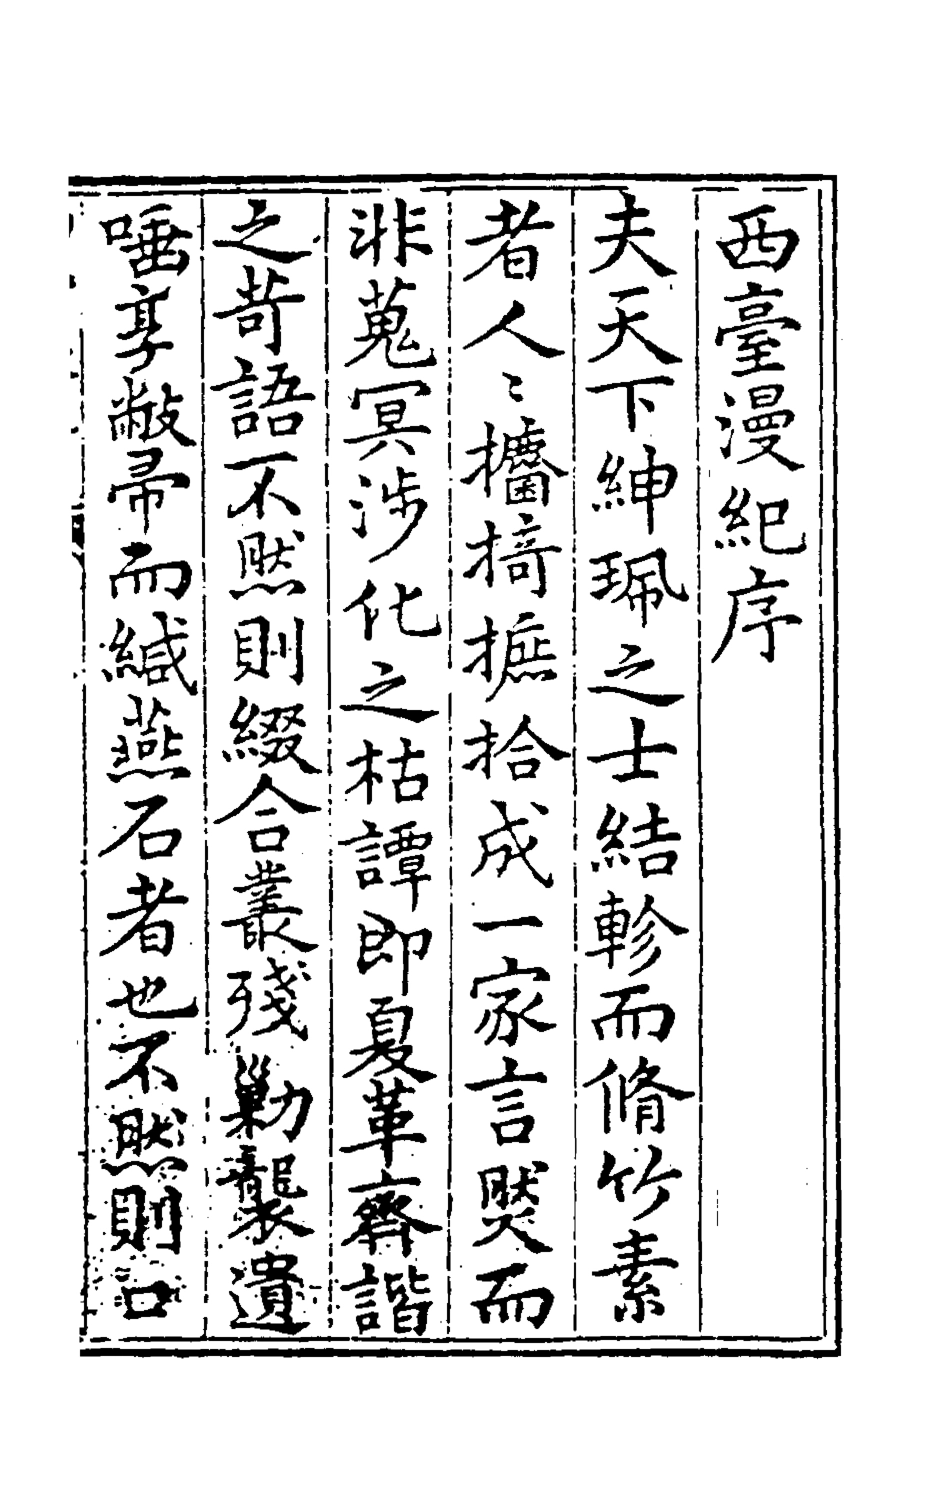 西臺漫紀序
夫天下紳珮之士結軫而脩竹素
者人〻攟掎摭拾成一家言然而
非蒐冥涉化之枯譚即夏革齊諧
之竒語不然則綴合叢殘勦襲遺
唾享敝帚而緘燕石者也不然則口